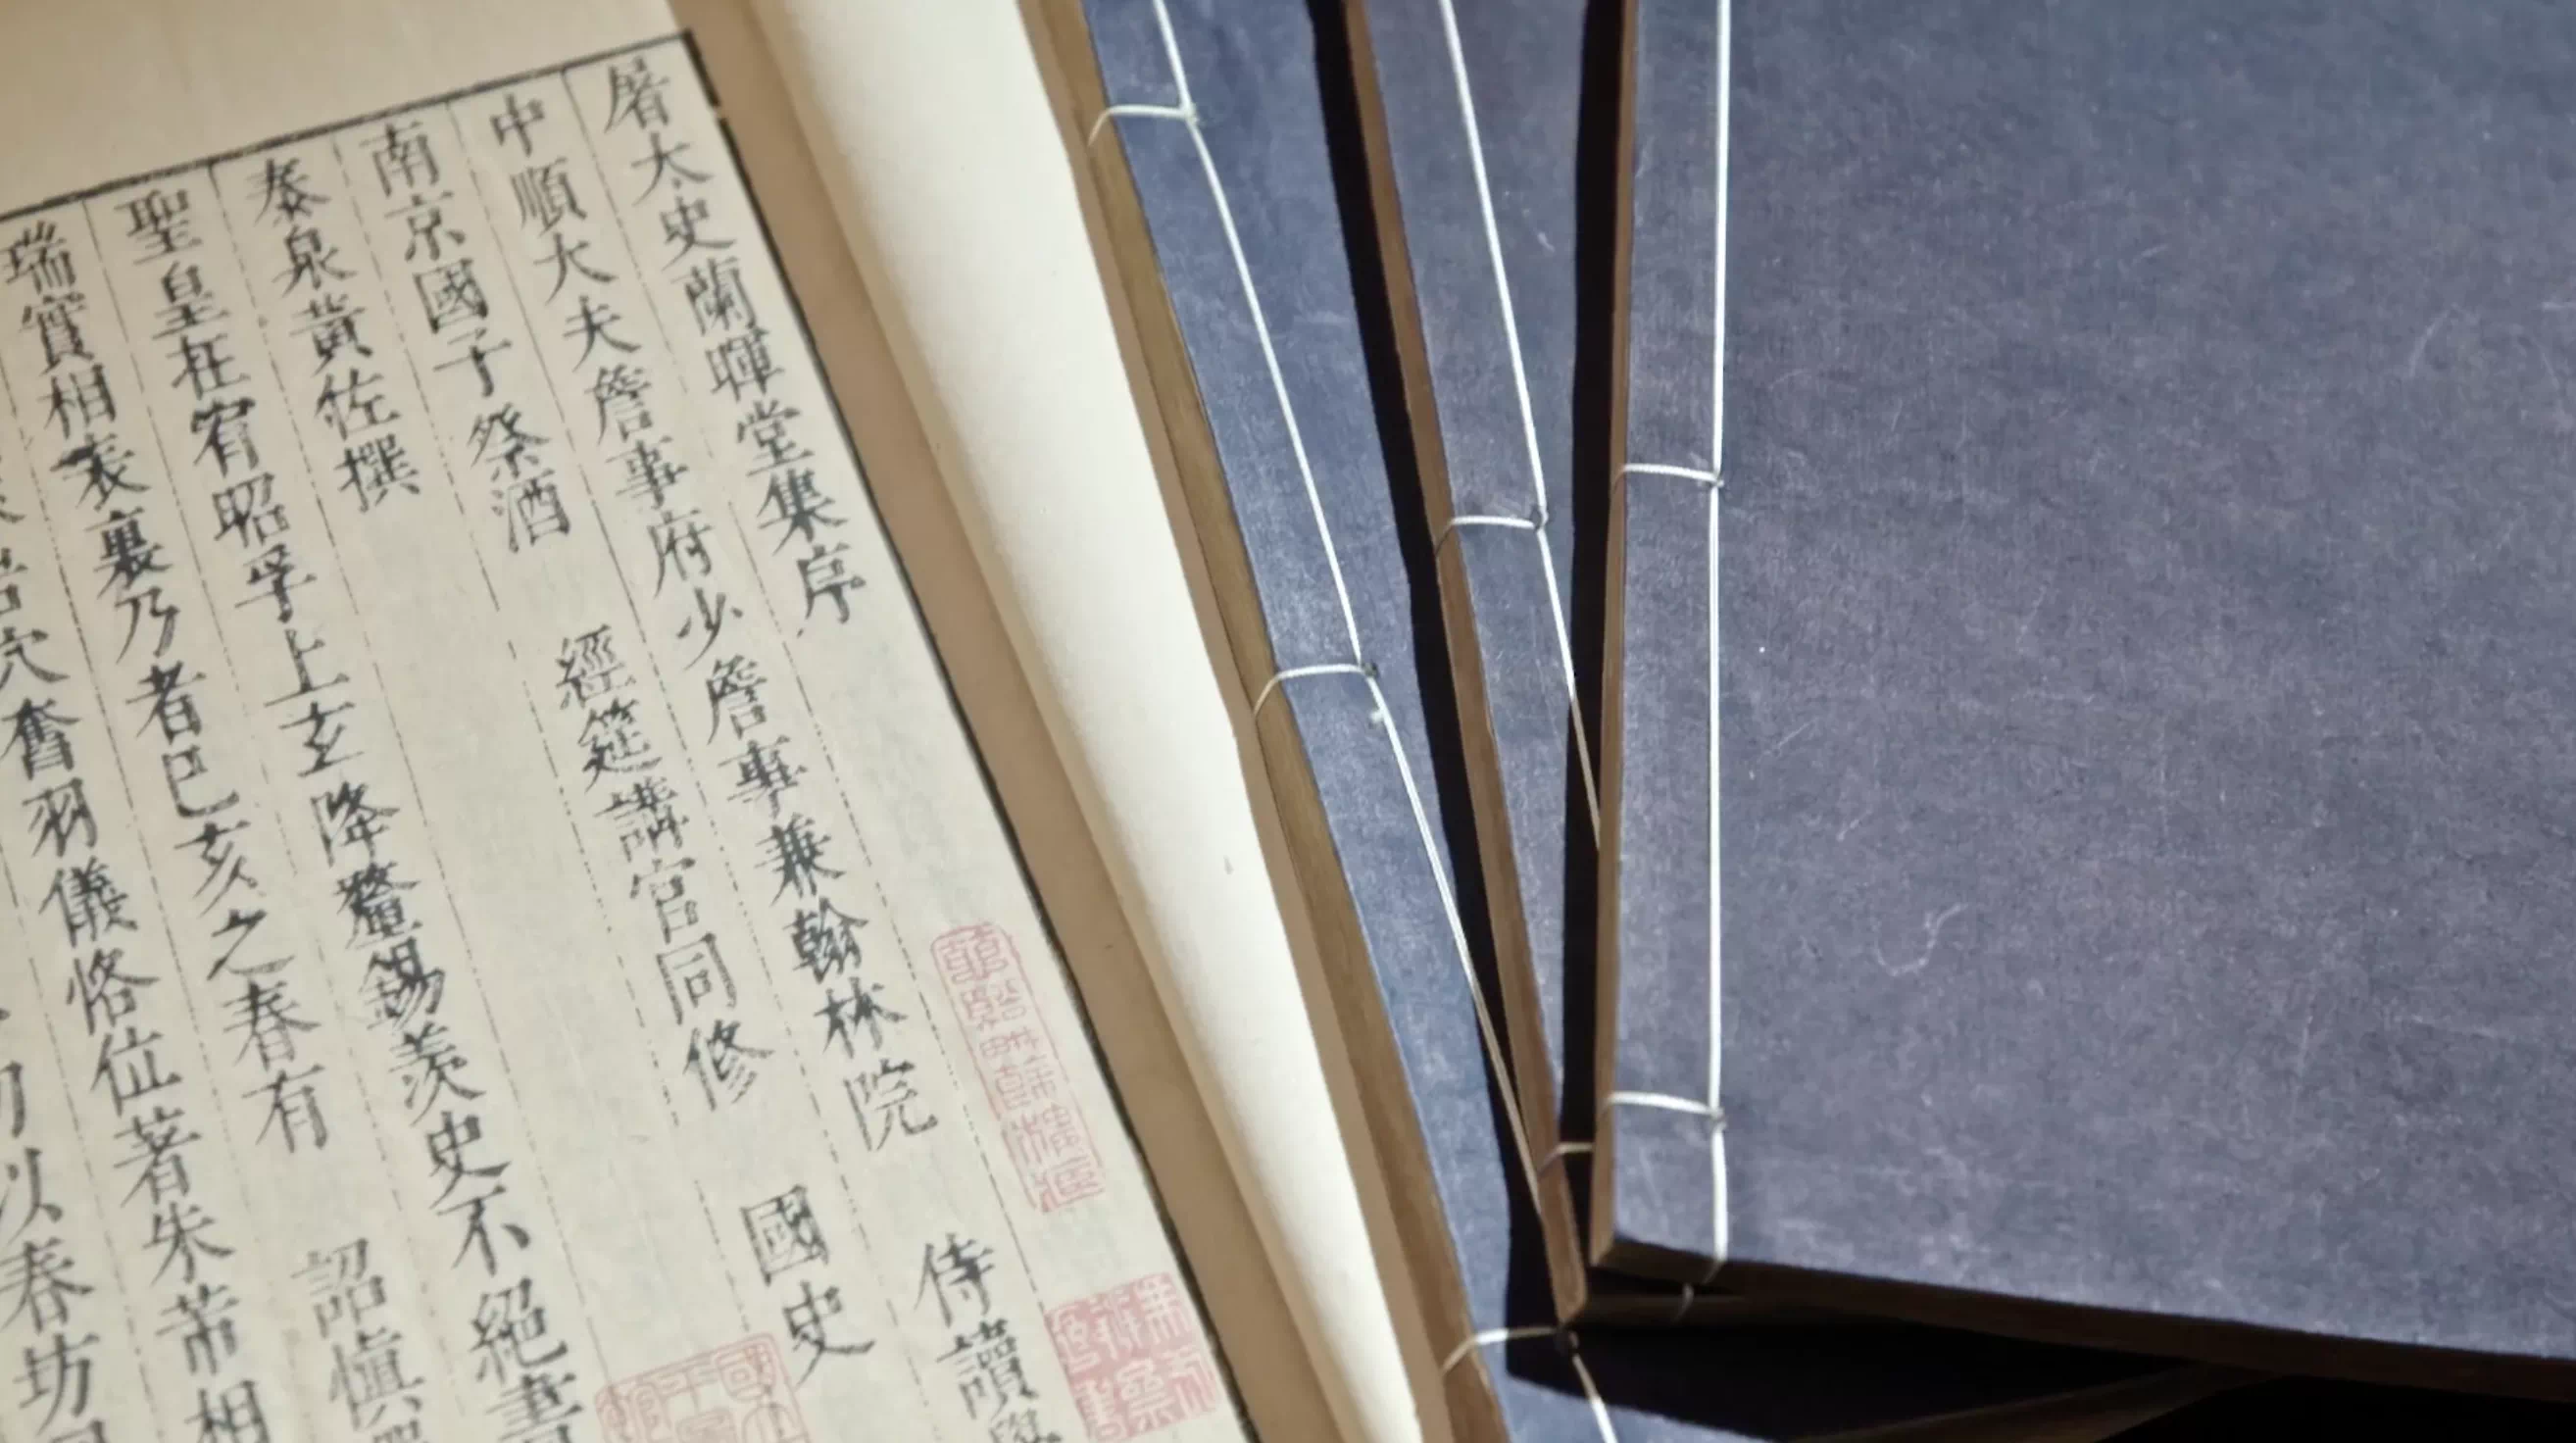 屠太史蘭暉堂集序
中順大夫詹事府少詹事兼翰林院 侍讀
南京國子祭酒 經筵講官同修 國史
泰泉黃佐撰
聖皇在宥昭孚上玄降釐錫羨史不絕書
瑞實相表裏乃者巳亥之春有 詔慎
穴奮羽儀恪位著朱芾相
以春坊